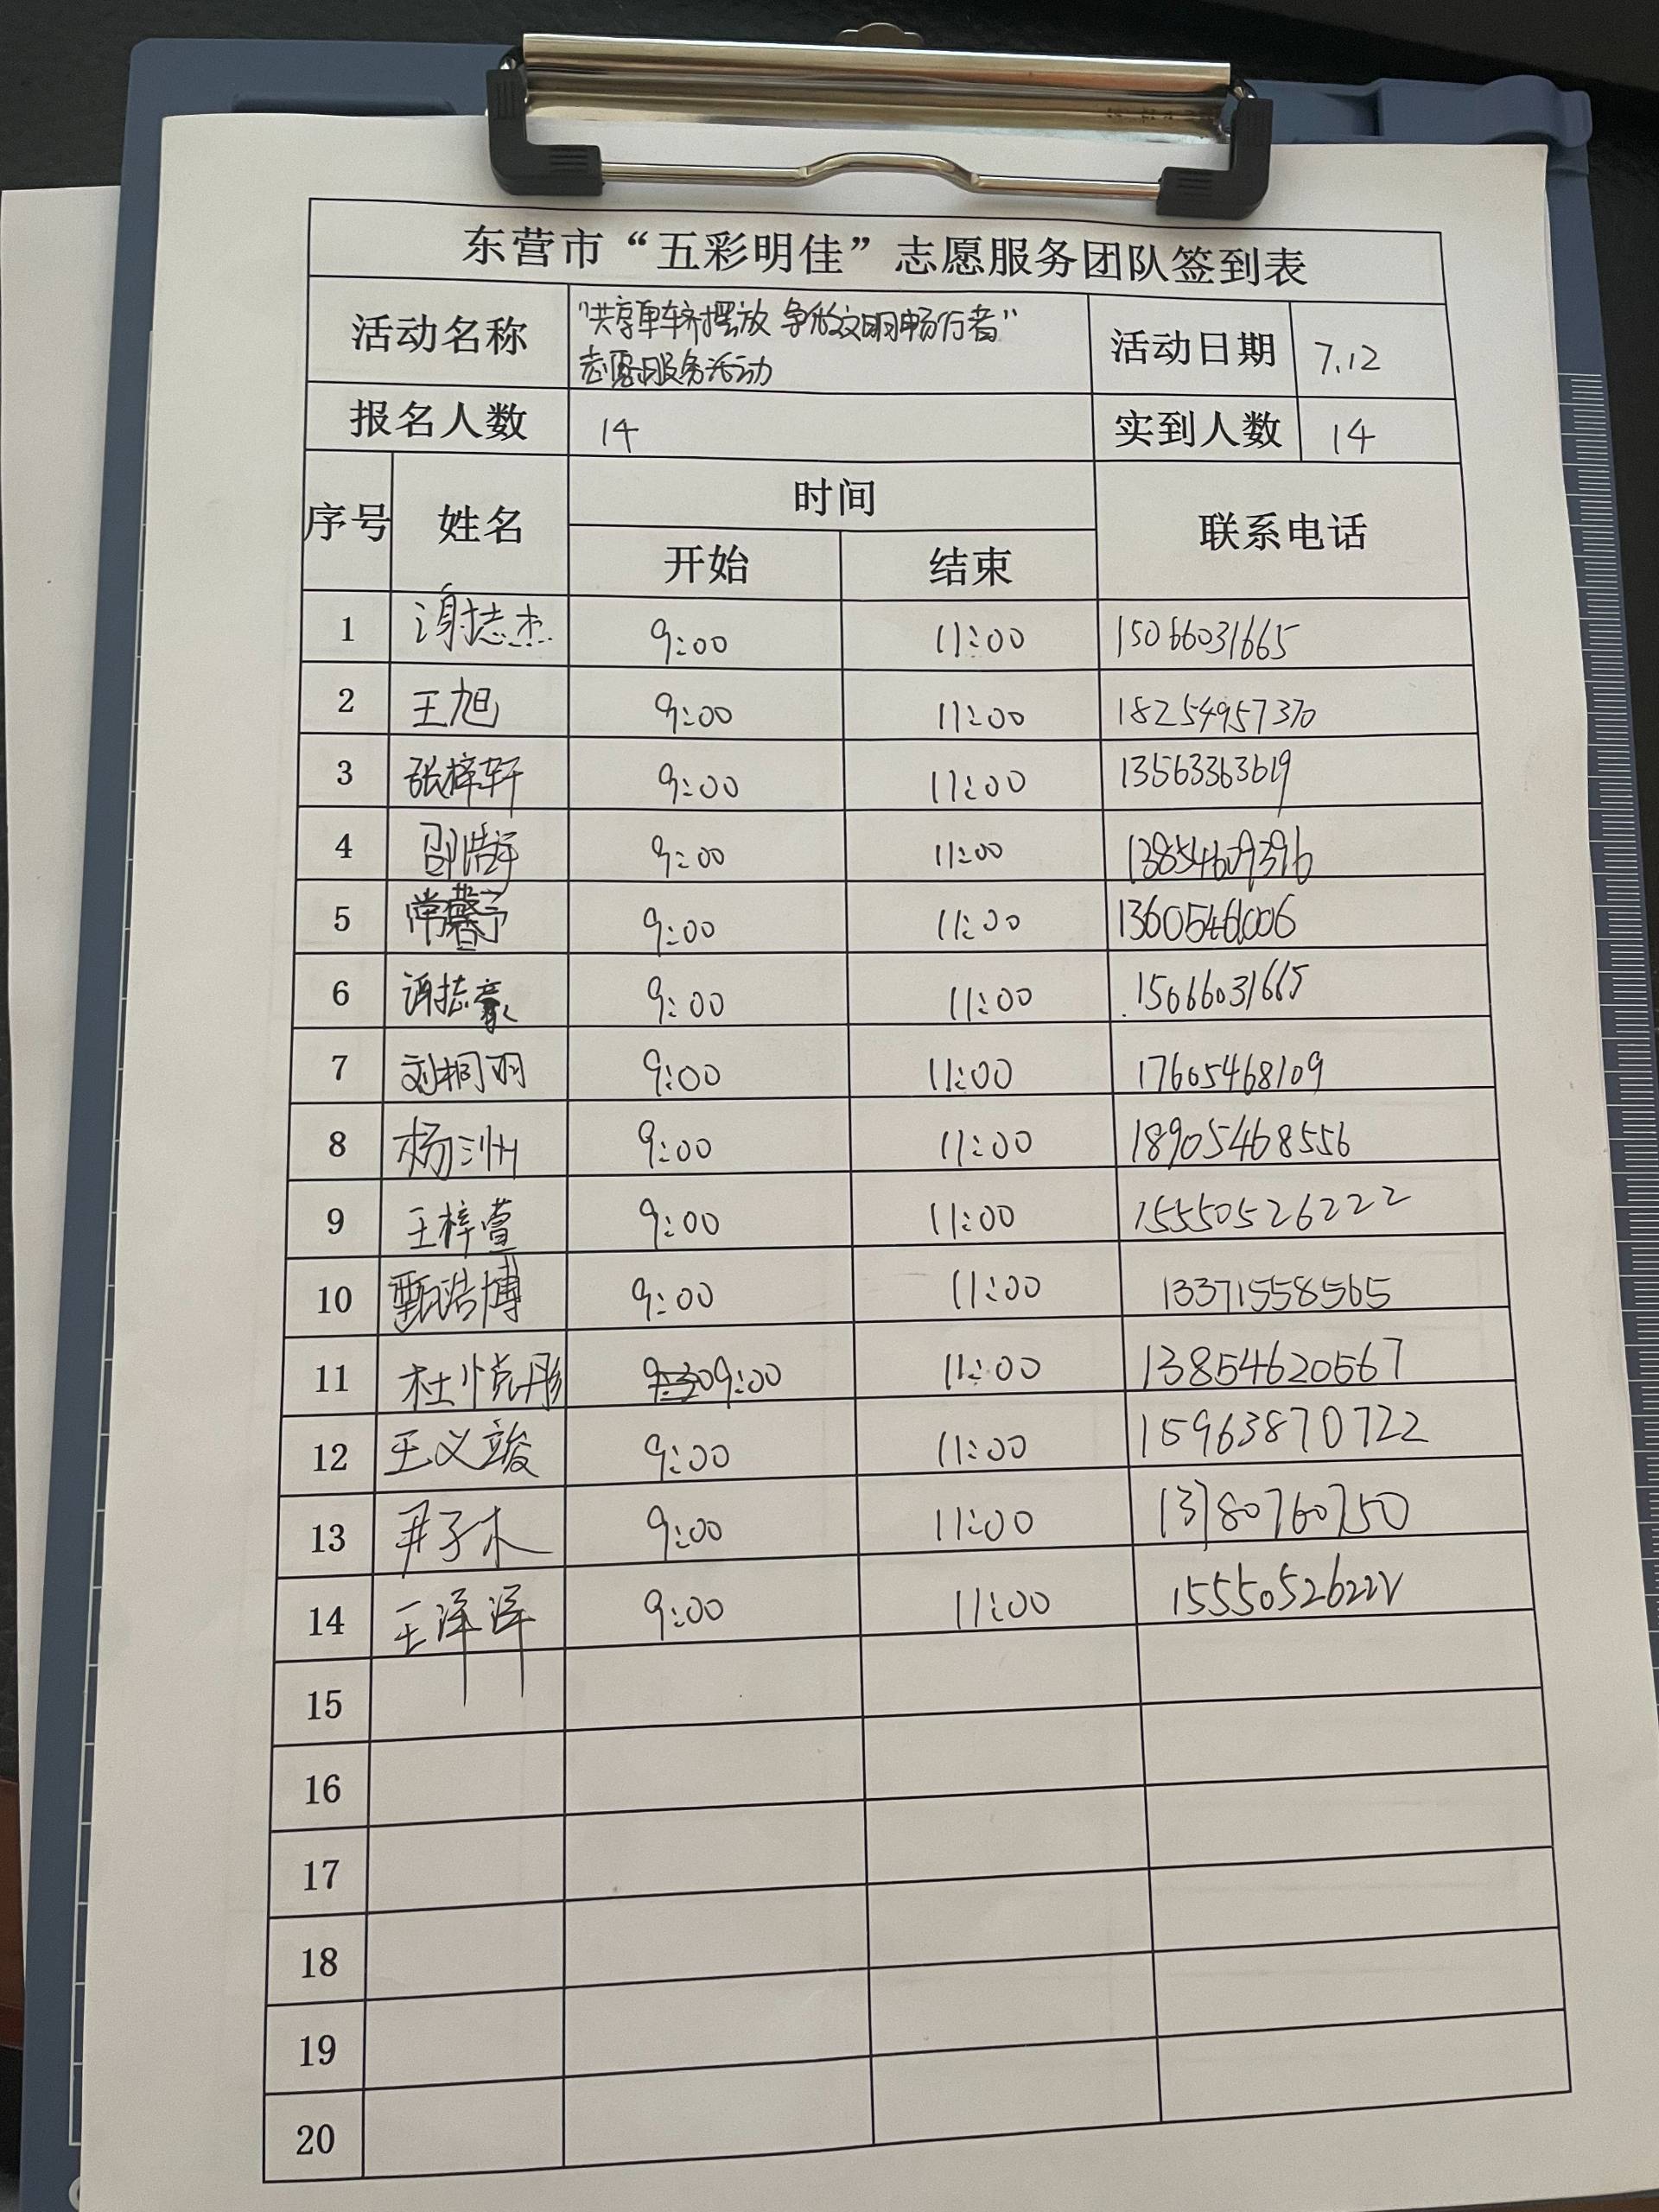 东营市“五彩明佳”志愿服务团队签到表
活动名称 “共享单车齐摆放 争做文明畅行者” 志愿服务活动 活动日期 7.12
报名人数 14 实到人数 14
序号 姓名 时间 联系电话
开始 结束
1 谢志杰 9:00 11:00 15066031665
2 王旭 9:00 11:00 18254957370
3 张梓轩 9:00 11:00 13563363619
4 邵浩宇 9:00 11:00 13854609396
5 常馨予 9:00 11:00
6 谢志豪 9:00 11:00 15066031665
7 刘桐羽 9:00 11:00 17605468109
8 杨洲 9:00 11:00 18905468556
9 王梓萱 9:00 11:00 15550526222
10 甄浩博 9:00 11:00 13371558565
11 杜悦彤 9:00 11:00 13854620567
12 王义竣 9:00 11:00 15963870722
13 尹子木 9:00 11:00 13780760750
14 王泽泽 9:00 11:00 15550526222
15
16
17
18
19
20